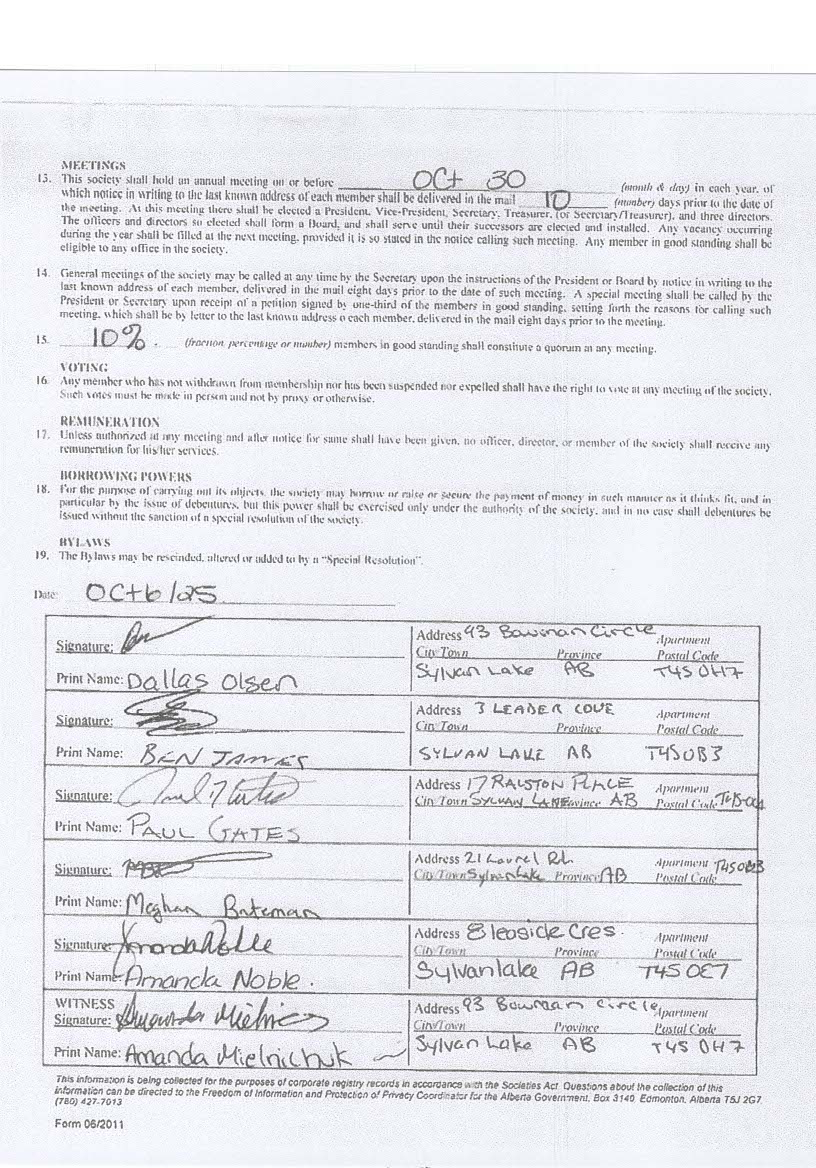 MEETINGS
13. This society shall hold an annual meeting on or before Oct 30 (month & day) in each year, of
which notice in writing to the last known address of each member shall be delivered in the mail 10 (number) days prior to the date of
the meeting. At this meeting there shall be elected a President, Vice-President, Secretary, Treasurer, (or Secretary/Treasurer), and three directors.
The officers and directors so elected shall form a Board, and shall serve until their successors are elected and installed. Any vacancy occurring
during the year shall be filled at the next meeting, provided it is so stated in the notice calling such meeting. Any member in good standing shall be
eligible to any office in the society.
14. General meetings of the society may be called at any time by the Secretary upon the instructions of the President or Board by notice in writing to the
last known address of each member, delivered in the mail eight days prior to the date of such meeting. A special meeting shall be called by the
President or Secretary upon receipt of a petition signed by one-third of the members in good standing, setting forth the reasons for calling such
meeting, which shall be by letter to the last known address o each member, delivered in the mail eight days prior to the meeting.
15. 10% (fraction, percentage or number) members in good standing shall constitute a quorum at any meeting.
VOTING
16. Any member who has not withdrawn from membership nor has been suspended nor expelled shall have the right to vote at any meeting of the society.
Such votes must be made in person and not by proxy or otherwise.
REMUNERATION
17. Unless authorized at any meeting and after notice for same shall have been given, no officer, director, or member of the society shall receive any
remuneration for his/her services.
BORROWING POWERS
18. For the purpose of carrying out its objects, the society may borrow or raise or secure the payment of money in such manner as it thinks fit, and in
particular by the issue of debentures, but this power shall be exercised only under the authority of the society, and in no case shall debentures be
issued without the sanction of a special resolution of the society.
BYLAWS
19. The Bylaws may be rescinded, altered or added to by a “Special Resolution”.
Date: Oct 6/25
Signature: Address 93 Bowman Circle Apartment
City/Town Province Postal Code
Print Name: Dallas Olsen Sylvan Lake AB T4S 0H7
Signature: Address 3 LEADER COVE Apartment
City/Town Province Postal Code
Print Name: BEN JAMES SYLVAN LAKE AB T4S0B3
Signature: Address 17 RALSTON PLACE Apartment
City/Town SYLVAN LAKE Province AB Postal Code
Print Name: PAUL GATES
Signature: Address 21 Laurel Rd. Apartment T4S0B3
City/Town Sylvan Lake Province AB Postal Code
Print Name: Meghan Bateman
Signature: Amanda Noble Address 8 leaside Cres. Apartment
City/Town Province Postal Code
Print Name: Amanda Noble. Sylvan lake AB T4S 0E7
WITNESS
Signature: Amanda Mielnichuk Address 93 Bowman Circle Apartment
City/Town Province Postal Code
Print Name: Amanda Mielnichuk Sylvan Lake AB T4S 0H7
This information is being collected for the purposes of corporate registry records in accordance with the Societies Act. Questions about the collection of this
information can be directed to the Freedom of Information and Protection of Privacy Coordinator for the Alberta Government, Box 3140, Edmonton, Alberta T5J 2G7
(780) 427-7013
Form 06/2011